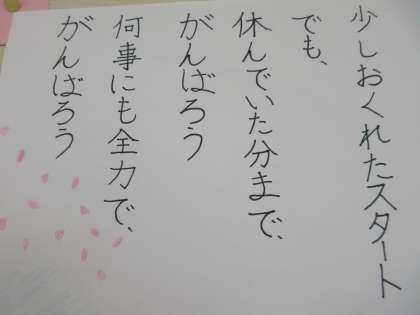 少しおくれたスタート
でも、
休んでいた分まで、
がんばろう
何事にも全力で、
がんばろう